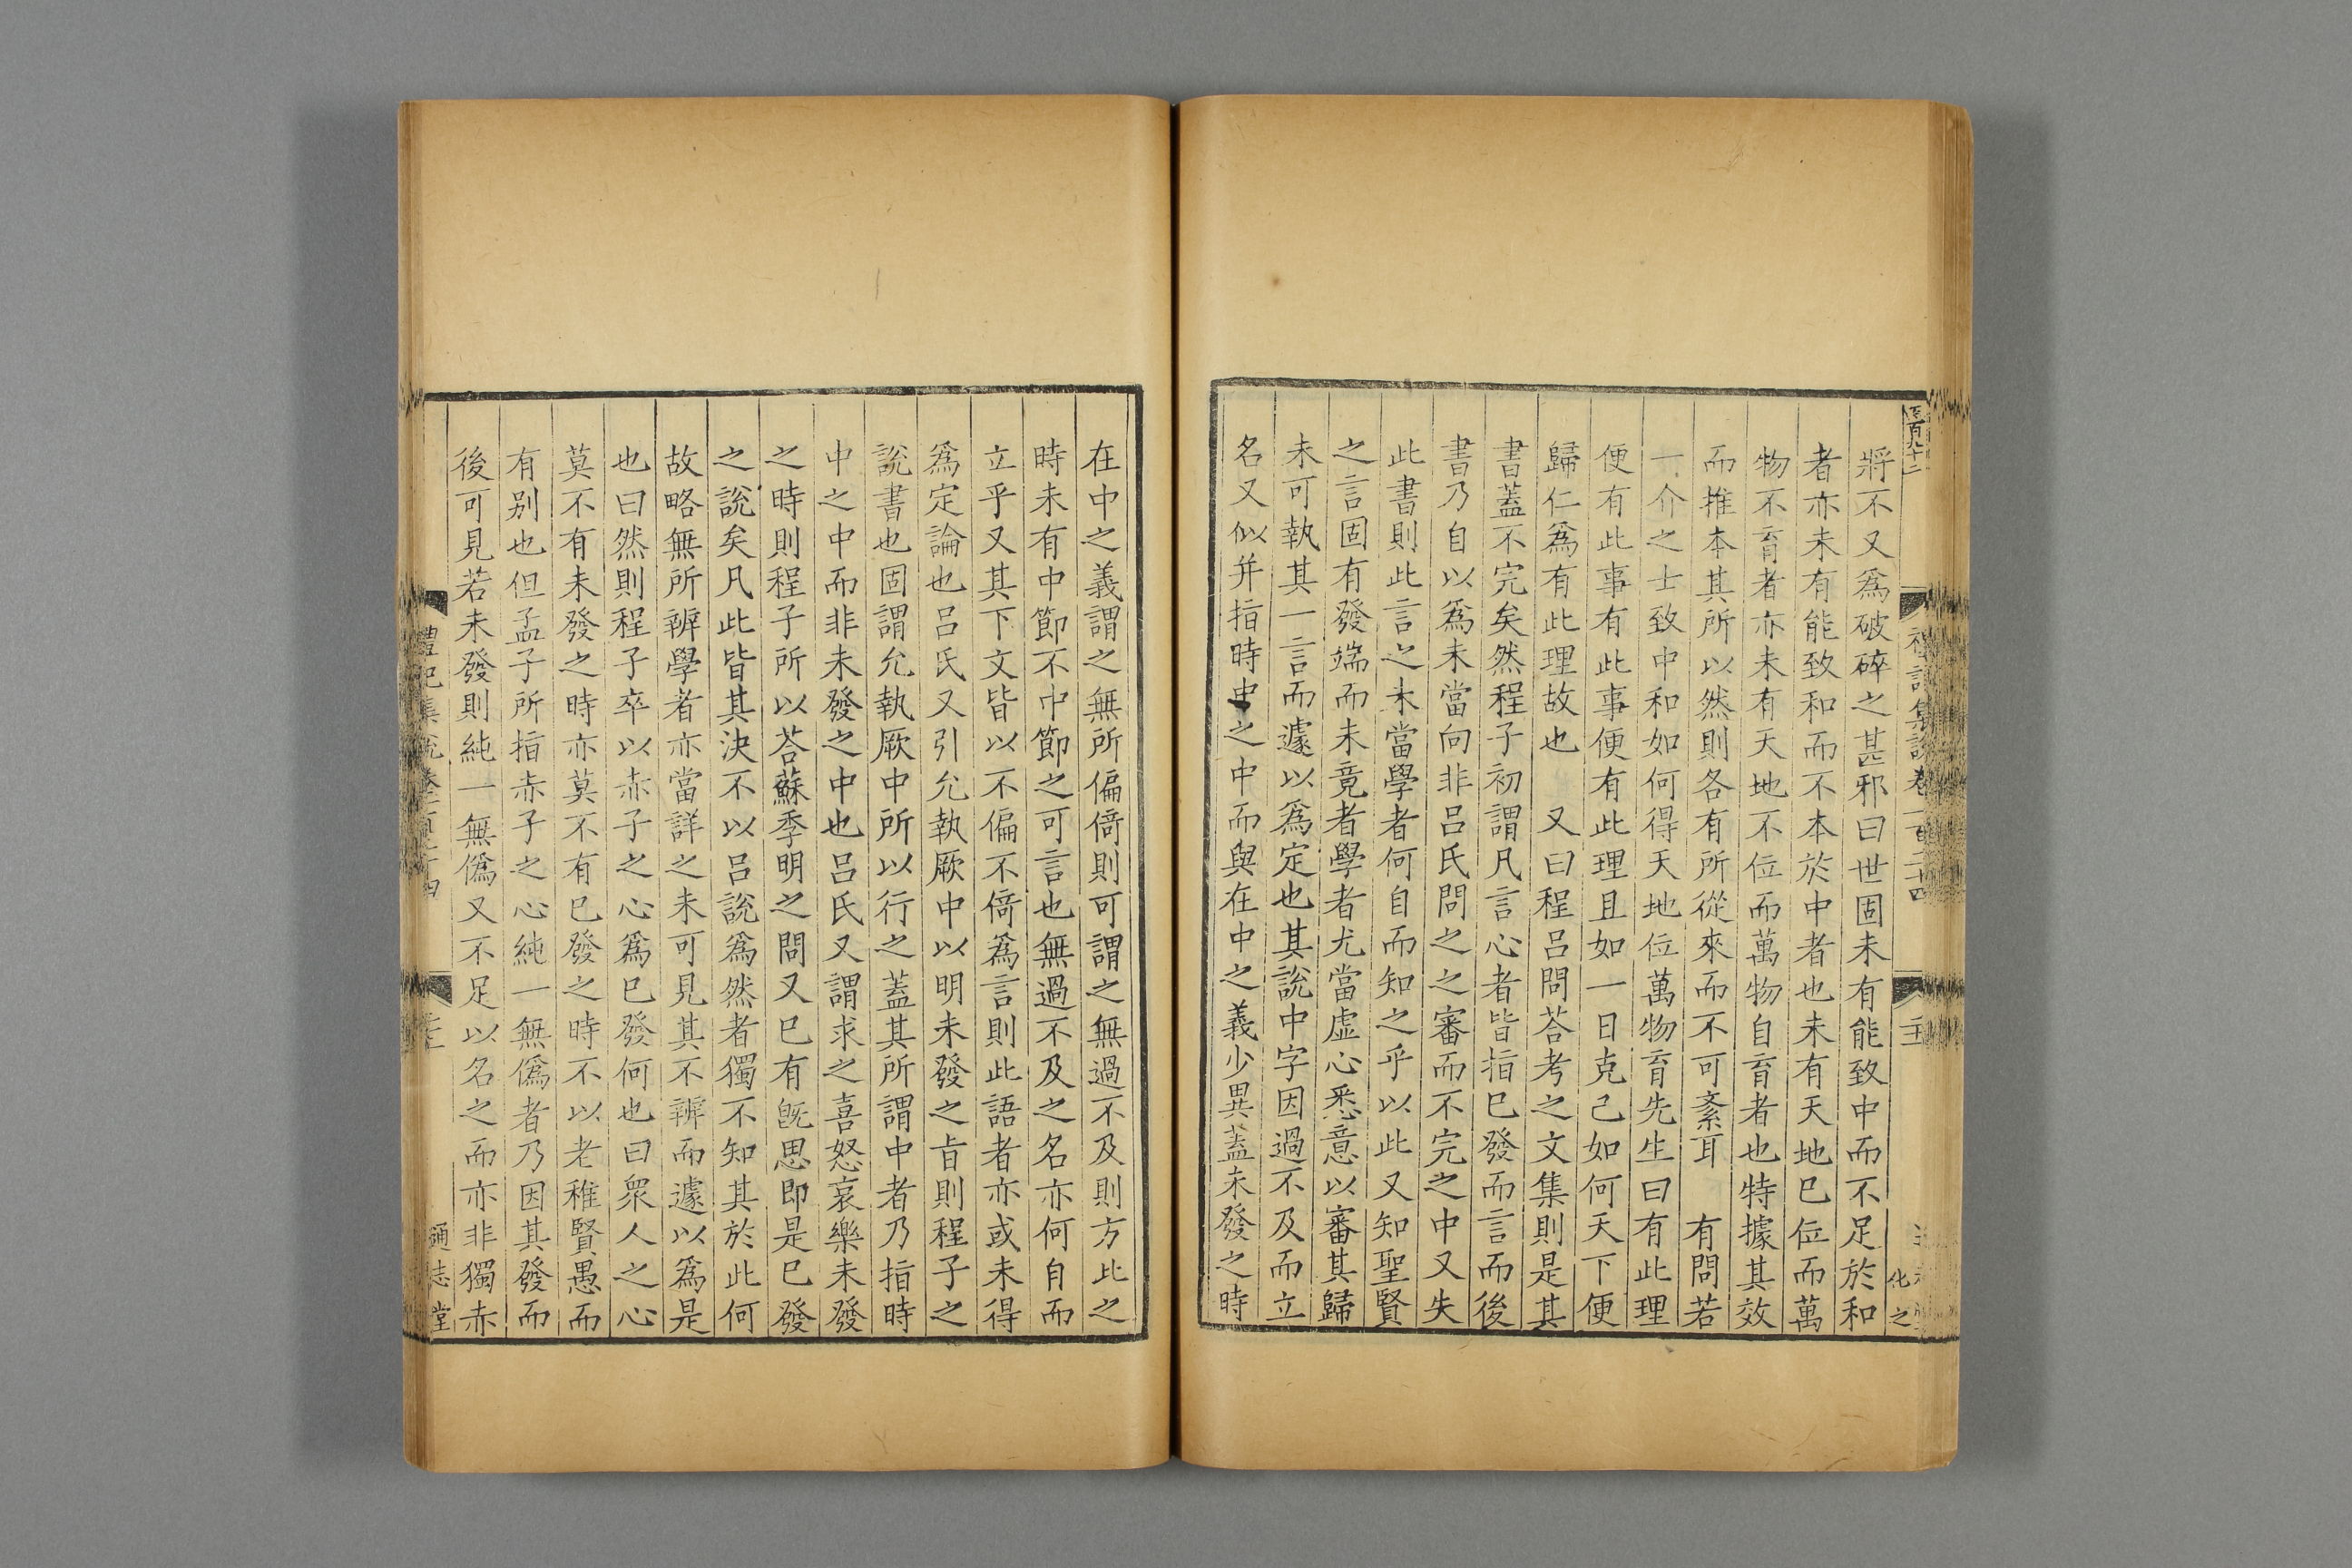 將不又爲破碎之甚邪曰世固未有能致中而不足於和
者亦未有能致和而不本於中者也未有天地已位而萬
物不育者亦未有天地不位而萬物自育者也特據其效
而推本其所以然則各有所從來而不可紊耳　有問若
一介之士致中和如何得天地位萬物育先生曰有此理
便有此事有此事便有此理且如一日克己如何天下便
歸仁爲有此理故也　又曰程呂問荅考之文集則是其
書蓋不完矣然程子初謂凡言心者皆指已發而言而後
書乃自以爲未當向非呂氏問之之審而不完之中又失
此書則此言之未當學者何自而知之乎以此又知聖賢
之言固有發端而未竟者學者尤當虛心悉意以審其歸
未可執其一言而遽以爲定也其說中字因過不及而立
名又似幷指時中之中而與在中之義少異蓋未發之時
在中之義謂之無所偏倚則可謂之無過不及則方此之
時未有中節不中節之可言也無過不及之名亦何自而
立乎又其下文皆以不偏不倚爲言則此語者亦或未得
爲定論也呂氏又引允執厥中以明未發之旨則程子之
說書也固謂允執厥中所以行之蓋其所謂中者乃指時
中之中而非未發之中也呂氏又謂求之喜怒哀樂未發
之時則程子所以荅蘇季明之問又已有旣思即是已發
之說矣凡此皆其決不以呂說爲然者獨不知其於此何
故略無所辨學者亦當詳之未可見其不辨而遽以爲是
也曰然則程子卒以赤子之心爲已發何也曰眾人之心
莫不有未發之時亦莫不有已發之時不以老稚賢愚而
有别也但孟子所指赤子之心純一無僞者乃因其發而
後可見若未發則純一無僞又不足以名之而亦非獨赤
禮記集說卷一百二十四
通志堂